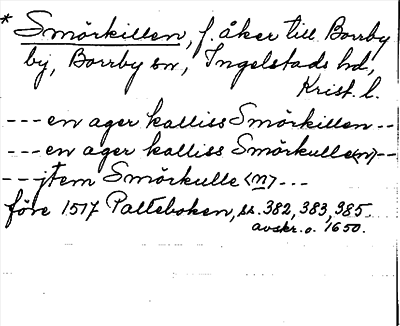 * Smörkillen, f. åker till Borrby
by, Borrby sn, Ingelstads hd,
Krist. l.
---en ager kalliss Smörkillen--
---en ager kalliss Smörkulle<n>--
---jtem Smörkulle <n>---
före 1517 Palteboken, s. 382, 383, 385.
avskr. o. 1650.